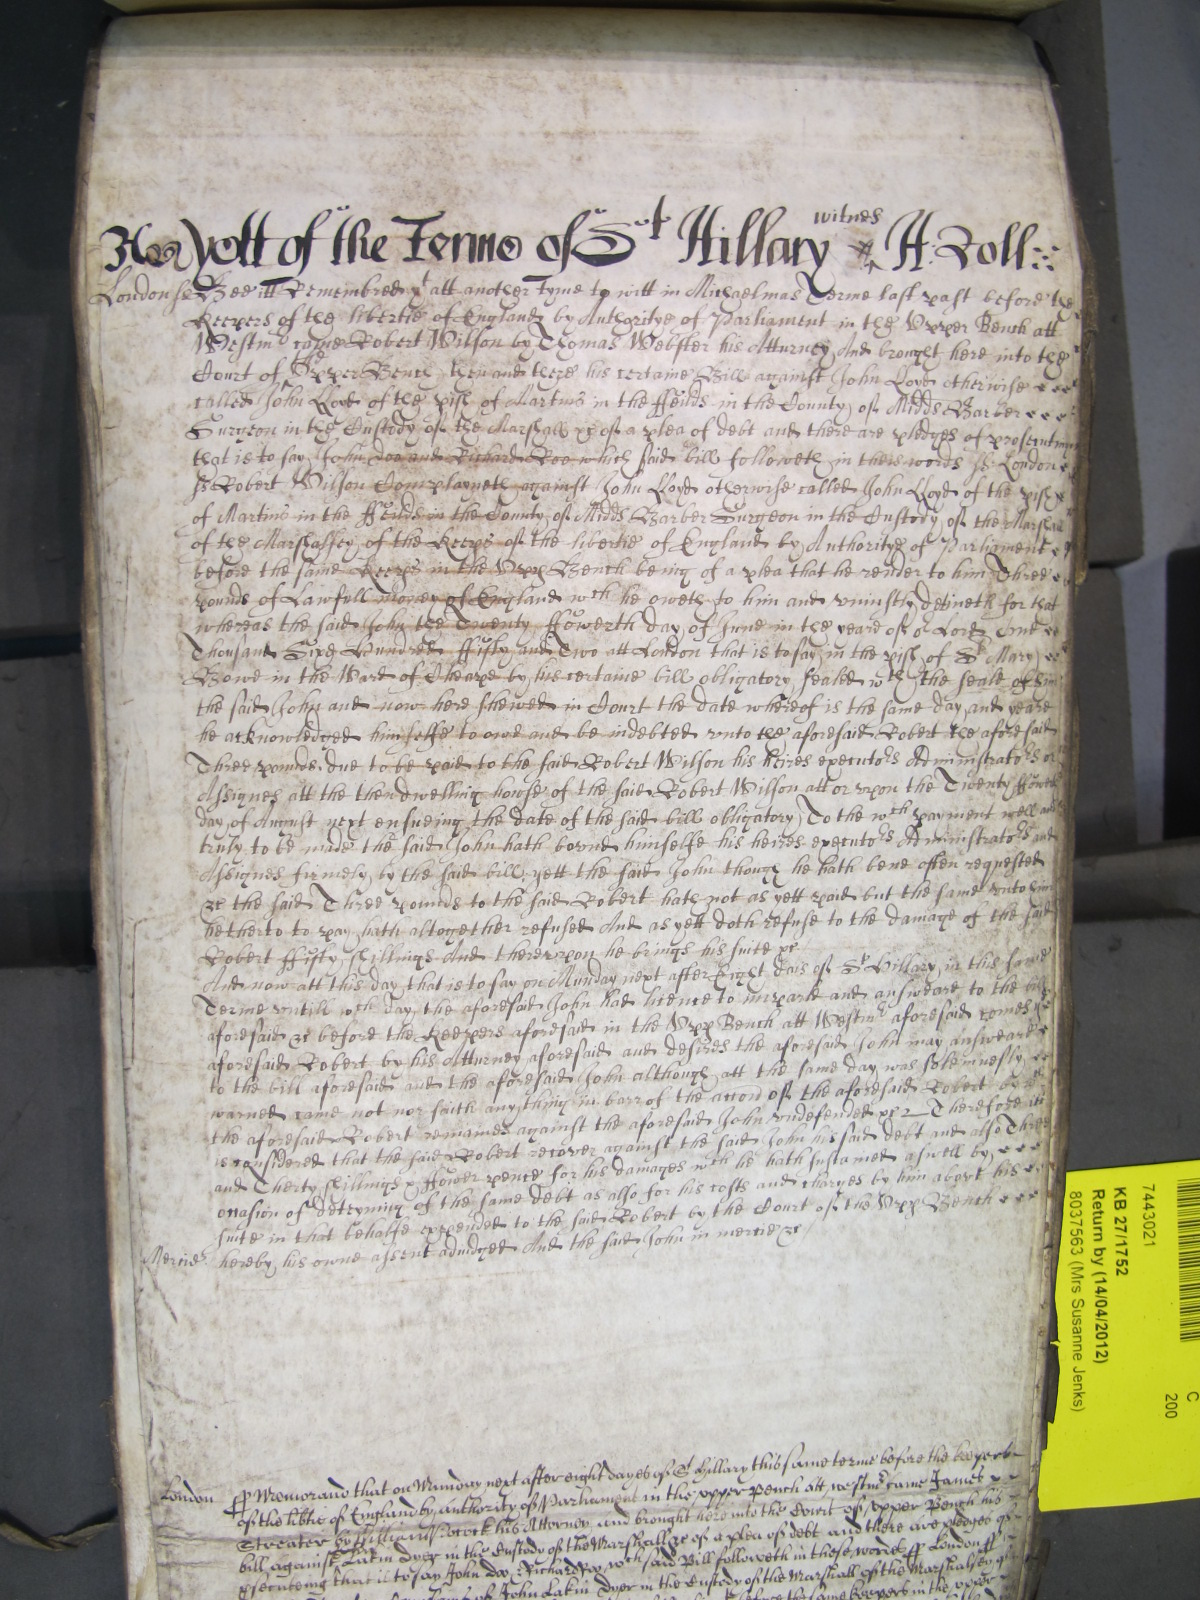 As yett of the Terme of St Hillary witnes H: Roll
London ss Bee itt Remembred yt att another tyme to witt in Michaelmas Terme last past before the
Keepers of the libertie of England by Authoritye of Parliament in the Vpper Bench att
Westmr came Robert Wilson by Thomas Webster his Atturney And brought here into the
Court of the Vpper Bench then and there his certaine Bill against John Loyd otherwise
called John Lloyd of the pish of Martins in the ffeilds in the County of Midds Barber
Surgeon in the Custody of the Marshall &c of a plea of debt and there are pledges of prosecuting
that is to say John Doo and Richard Roo which said bill followeth in theis words ss London
ss Robert Wilson Complayneth against John Lloyd otherwise called John Lloyd of the pish
of Martins in the ffeilds in the County of Midds Barber Surgeon in the Custody of the Marshall
of the Marshalsey of the Keeps of the libertie of England by Authoritye of Parliament
before the same Keeps in the Vpp Bench being of a plea that he render to him Three
pounds of Lawfull money of England wch he oweth to him and vniustly detineth for that
whereas the said John the Twenty ffowerth day of June in the yeare of or Lord One
Thousand Sixe Hundred ffifty and Two att London that is to say in the pish of St Mary
Bowe in the Ward of Cheape by his certaine bill obligatory sealed wth the seale of him
the said John and now here shewed in Court the date whereof is the same day and yeare
he acknowledged himselfe to owe and be indebted vnto the aforesaid Robert the aforesaid
Three pounds due to be paid to the said Robert Wilson his heires executors Administrators or
Assignes att the then dwelling howse of the said Robert Wilson att or vpon the Twenty ffowerth
day of August next ensueing the date of the said bill obligatory To the wch payment well and
truly to be made the said John hath bound himselfe his heires executors Administrators and
Assignes firmely by the said bill yett the said John though he hath bene often requested
&c the said Three pounds to the said Robert hath not as yett paid but the same vnto him
hetherto to pay hath altogether refused And as yett doth refuse to the damage of the said
Robert ffifty shillings And therevpon he brings his suite &c
And now att this day that is to say on Munday next after Eight dais of St Hillary in this same
Terme vntill wch day the aforesaid John had licence to imparle and answeare to the bill
aforesaid &c before the Keepers aforesaid in the Vpp Bench att Westmr aforesaid comes ye
aforesaid Robert by his Atturney aforesaid and desires the aforesaid John may answeare
to the bill aforesaid and the aforesaid John although att the same day was solemnely
warned came not nor saith anything in barr of the accon of the aforesaid Robert by
the aforesaid Robert remaines against the aforesaid John vndefended &c Therefore itt
is considered that the said Robert recover against the said John his said debt and also Three
and Therty shillings & ffower pence for his damages wch he hath sustained aswell by
occasion of deteyning of the same debt as also for his costs and charges by him about his
suite in that behalfe expended to the said Robert by the Court of the Vpp Bench
Mercie hereby his owne assent adiudged And the said John in mercie &c
London ss Memorand that on Munday next after eight dayes of St Hillary this same terme before the keepers
of the libtie of England by authority of Parliament in the vpper Bench att westmr came James
Streater by William Cocock his Attorney and brought here into the Court of vpper Bench his
bill against Latin Dyer in the Custody of the Marshall &c of a plea of debt and there are pledges of
psecuteing that is to say John Doo & Richard Roo wch said Bill followeth in these words ss London ss
John Latin Dyer in the Custody of the Marshall of the Marshalsey
before the same keepers in the vpper
7443021
KB 27/1752
Return by (14/04/2012)
8037563 (Mrs Susanne Jenks)
C
200